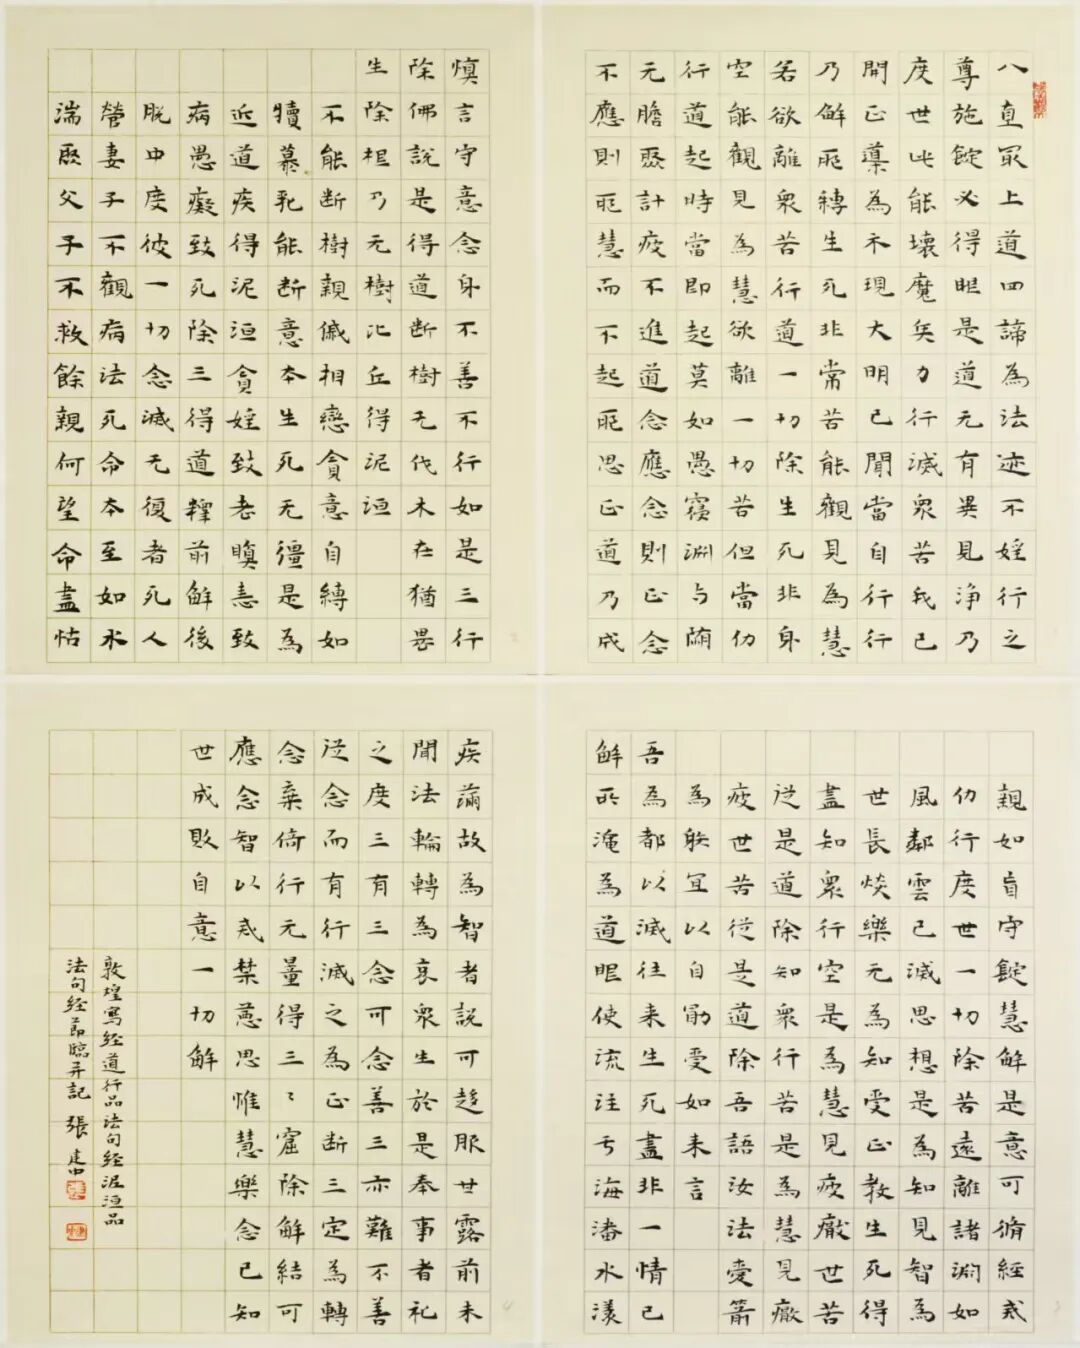 八直最上道四諦為法迹不婬行之
尊施錠必得眼是道无有異見淨乃
度世此能壞魔兵力行滅眾苦我已
開正道為木現大明已聞當自行行
乃解邪縛生死非常苦能觀見為慧
若欲離眾苦行道一切除生死非身
空能觀見為慧欲離一切苦但當仂
行道起時當即起莫如愚寢淵与
无瞻聚計疲不進道念應念則正念
不應則邪慧而不起邪思正道乃成
慎言守意念身不善不行如是三行
除佛說是得道断樹无伐木在猶畏
生除根乃无樹比丘得泥洹
不能断樹親慼相戀貪意自縛如
犢慕乳能断意本生死无彊是為
近道疾得泥洹貪婬致老瞋恚致
病愚癡致死除三得道釋前解後
脫中度彼一切念滅无復者死人
營妻子不觀病法死命本至如水
湍聚父子不救餘親何望命盡怙
親如盲守錠慧解是意可脩經戒
仂行度世一切除苦遠離諸淵如
風鄰雲已滅思想是為知見智為
世長惔樂无為知受正教生死得
盡知眾行空是為慧見疲厭世苦
從是道除知眾行苦是為慧見厭
疲世苦從是道除吾語汝法愛箭
為躲宜以自勗受如来言
吾為都以滅往来生死盡非一情已
解所淹為道眼使流注于海潘水漾
疾滿故為智者說可趍服甘露前未
聞法輪轉為哀眾生於是奉事者礼
之度三有三念可念善三亦難不善
從念而有行滅之為正断三定為轉
念棄倚行无量得三〻窟除解結可
應念智以戒禁惡思惟慧樂念已知
世成敗自意一切解
敦煌寫經道行品法句經泥洹品
法句經節臨并記 張建中